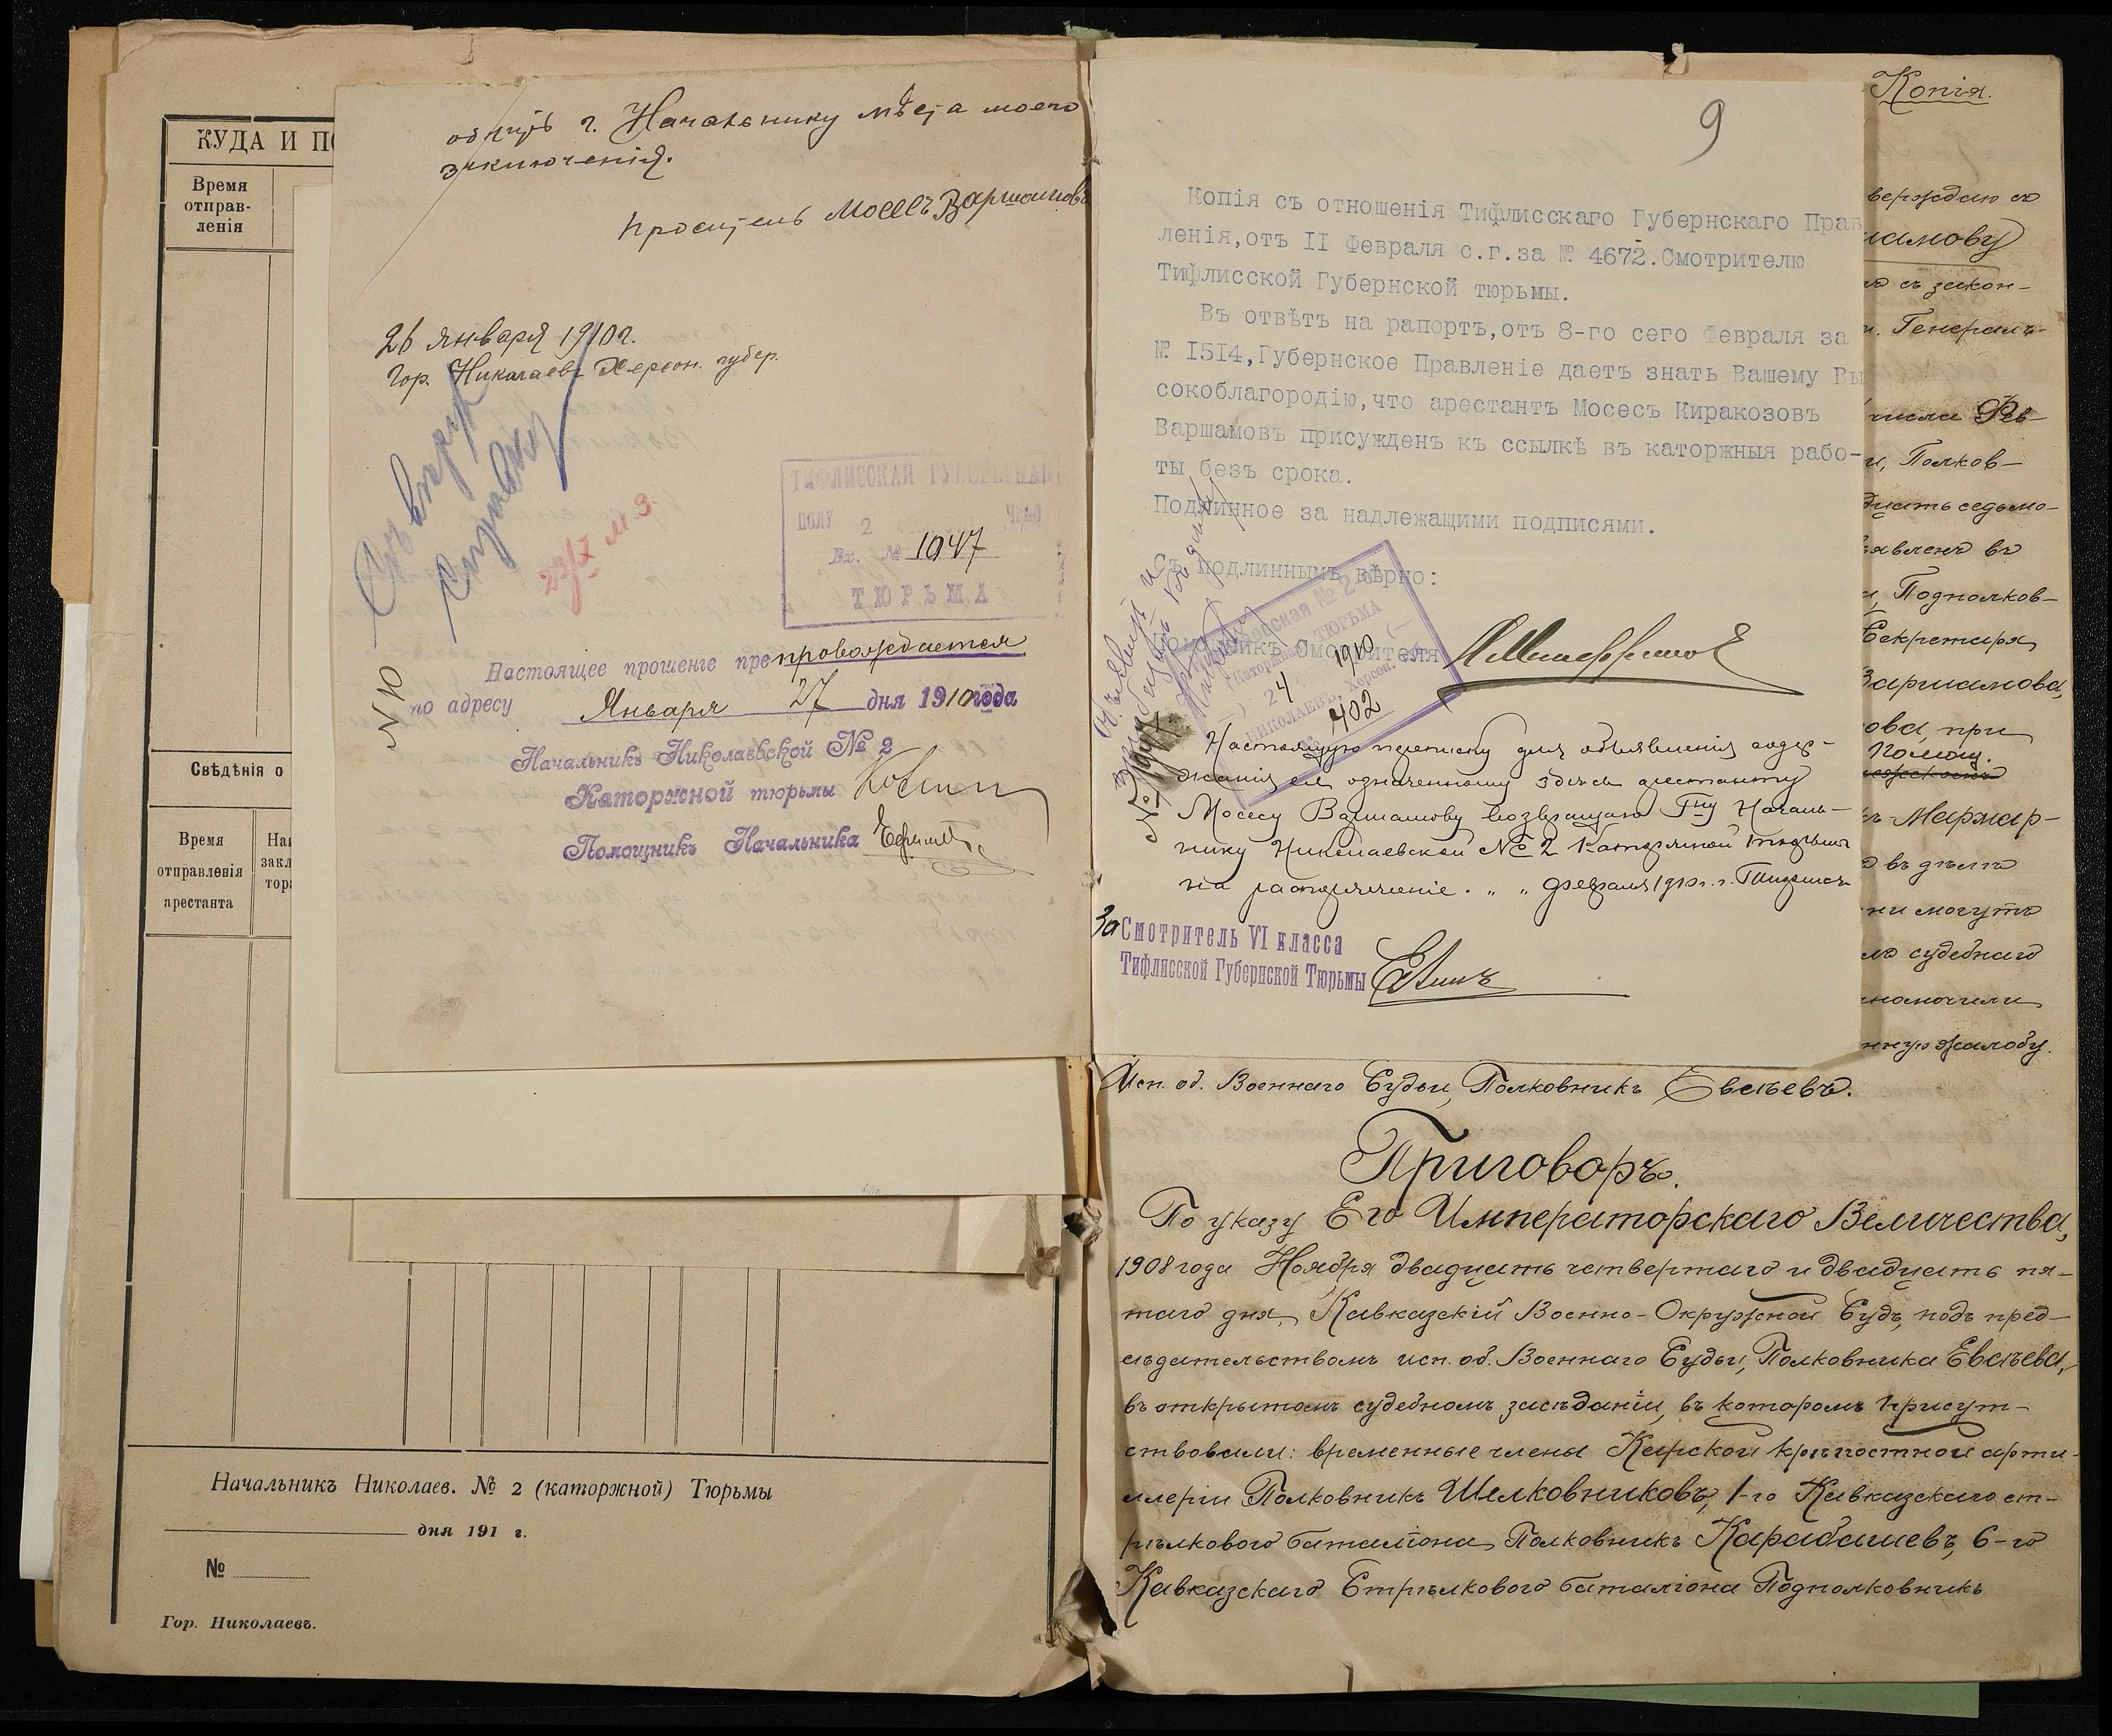 КУДА И ПО
Время
отправ-
ленія
Свѣдѣнія о
Время
отправленія
арестанта
На
закл
тор
Начальникъ Николаев. № 2 (каторжной) Тюрьмы
дня 191 г.
№
Гор. Николаевъ.
г. Начальнику мѣста моего
заключенія.
Проситель Мосесъ Варшамовъ
26 января 1910 г.
Гор. Николаевъ Херсон. губер.
справку
ТИФЛИССКАЯ ГУБЕРНСКАЯ
ПОЛУ 2
Вх. № 1047
ТЮРЬМА
Настоящее прошеніе препровождается
по адресу Января 27 дня 1910 года
Начальникъ Николаевской № 2
Каторжной тюрьмы
Помощникъ Начальника
9
Копія съ отношенія Тифлисскаго Губернскаго Прав
ленія,отъ II Февраля с.г.за № 4672.Смотрителю
Тифлисской Губернской тюрьмы.
Въ отвѣтъ на рапортъ,отъ 8-го сего Февраля за
№ I5I4,Губернское Правленіе даетъ знать Вашему Вы
сокоблагородію,что арестантъ Мосесъ Киракозовъ
Варшамовъ присужденъ къ ссылкѣ въ каторжныя рабо-
ты безъ срока.
Подлинное за надлежащими подписями.
Съ подлиннымъ вѣрно:
Смотрителя
№ 2
ТЮРЬМА
24 1910
НИКОЛАЕВЪ, Херсон.
402
Настоящую переписку для объявленія содер-
жанія ея означенному здѣсь арестанту
Мосесу Варшамову возвращаю Гну Началь-
нику Николаевской № 2 Каторжной тюрьмы
на распоряженіе. " " Февраля 1910 г. г. Тифлисъ
За Смотритель VI класса
Тифлисской Губернской Тюрьмы
Копія.
вержденію
шамову
съ закон-
Генералъ-
числа Фев-
Полков-
дцать седьмо-
явленъ въ
Подполков-
Секретаря
Варшамова,
ова, при
Помощ.
Мармар-
въ дѣлѣ
ни могутъ
судебнаго
нную жалобу.
Исп. об. Военнаго Судьи, Полковникъ Евсѣевъ.
Приговоръ.
По указу Его Императорскаго Величества,
1908 года Ноября двадцать четвертаго и двадцать пя-
таго дня, Кавказскій Военно-Окружной Судъ, подъ пред-
сѣдательствомъ исп. об. Военнаго Судьи, Полковника Евсѣева,
въ открытомъ судебномъ засѣданіи, въ которомъ присут-
ствовали: временные члены Карской крѣпостной арти-
ллеріи Полковникъ Шелковниковъ, 1-го Кавказскаго ст-
рѣлкового баталіона Полковникъ Карабашевъ, 6-го
Кавказскаго Стрѣлкового баталіона Подполковникъ